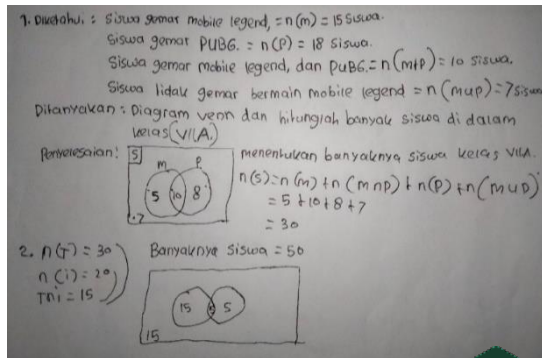 1. Diketahui : Siswa gemar mobile legend, = n(m) = 15 Siswa.
Siswa gemar PUBG. = n(P) = 18 Siswa.
Siswa gemar mobile legend, dan PuBG. = n(m+p) = 10 Siswa.
Siswa tidak gemar bermain mobile legend = n(mup) = 7 Siswa
Ditanyakan : Diagram venn dan hitunglah banyak siswa di dalam
kelas (VII A.)
Penyelesaian:
S
m P
5 10 8
.7
menentukan banyaknya siswa kelas VII A.
n(s) = n(m) + n(mnp) + n(p) + n(mup)
= 5 + 10 + 8 + 7
= 30
2. n(T) = 30
n(i) = 20
Tni = 15
Banyaknya Siswa = 50
15 5
15